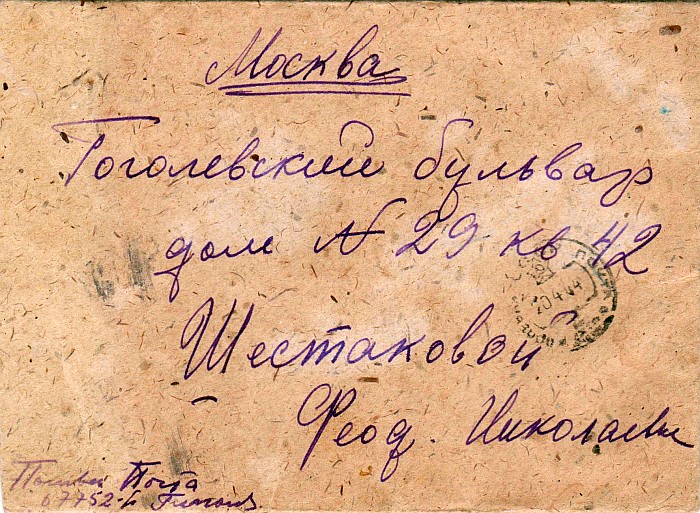 Москва
Гоголевский бульвар
дом N 29 кв 42
Шестаковой
Феод. Николаевн
Полевая Почта
67752-